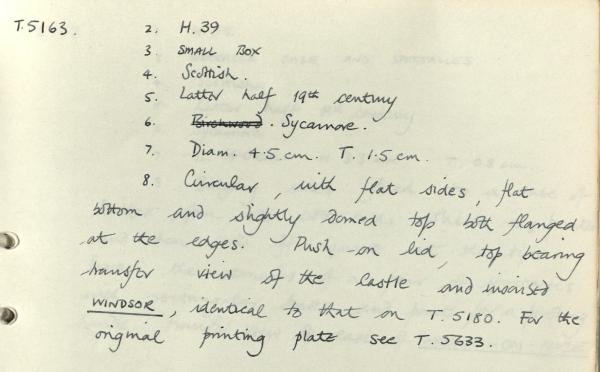 T.5163. 2. H.39
3 SMALL BOX
4. Scottish.
5. Latter half 19th century
6. Birchwood. Sycamore.
7. Diam. 4.5 cm. T. 1.5 cm.
8. Circular, with flat sides, flat
bottom and slightly domed top both flanged
at the edges. Push-on lid, top bearing
transfer view of the Castle and incised
WINDSOR, identical to that on T.5180. For the
original printing plate see T.5633.